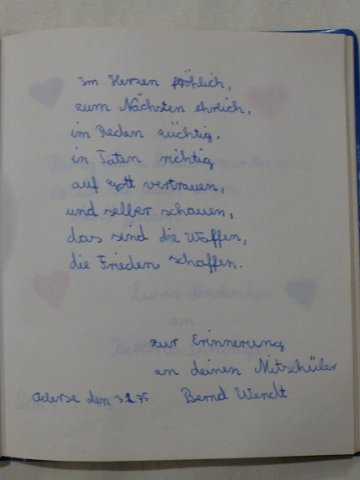 Im Herzen fröhlich,
zum Nächsten ehrlich,
im Reden züchtig,
in Taten richtig
auf Gott vertrauen,
und selber schauen,
das sind die Waffen,
die Frieden schaffen.
zur Erinnerung
an deinen Mitschüler
den Bernd Wendt